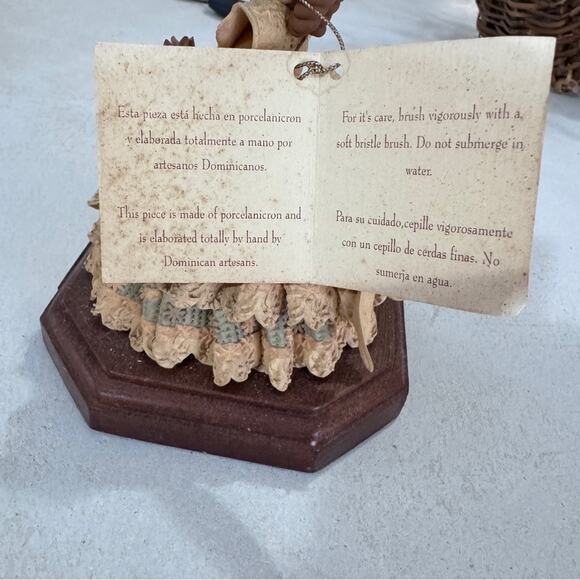 Esta pieza está hecha en porcelanicron
y elaborada totalmente a mano por
artesanos Dominicanos.
This piece is made of porcelanicron and
is elaborated totally by hand by
Dominican artesans.
For it's care, brush vigorously with a
soft bristle brush. Do not submerge in
water.
Para su cuidado,cepille vigorosamente
con un cepillo de cerdas finas. No
sumerja en agua.